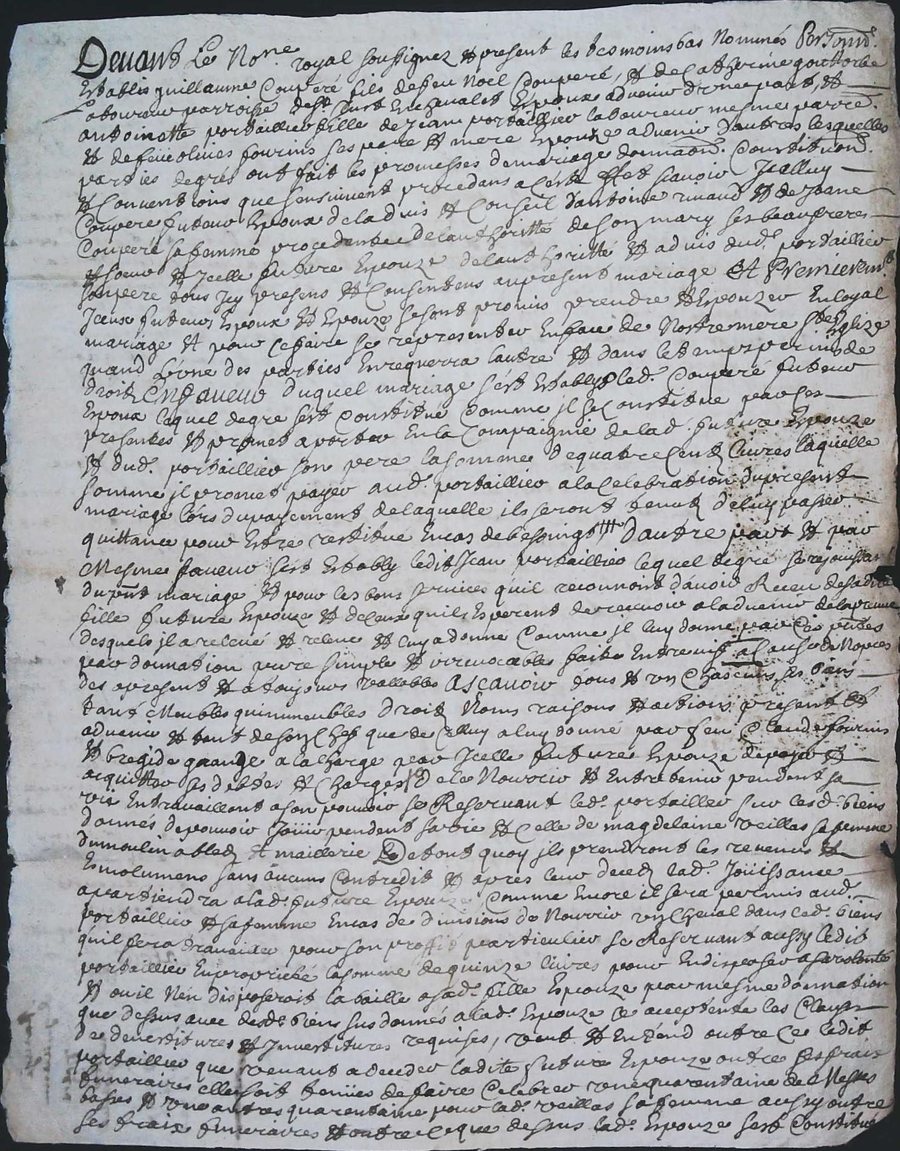 Devant Le Nore royal soussignez et present les tesmoins bas Nommés Personnt
Establis guillaume Couperé fils de feu Noel Couperé, et de Catherine
Laboureur parroisse de st Just En Chevalet Espoux advenir d'une part, et
anthoinette portaillier fille de Jean portaillier laboureur mesme parre.
et de feue olivie fournis ses pere et mere Epouze advenir d'autres lesquelles
parties de gré ont fait les promesses de mariage donnaons. Constituons.
et Conventions que sensuivent procedans a Cest effet scavoir Icelluy
Couperé futeur Epoux de laduis et Conseil d'antoine et de Jeane
Couperé sa femme procedente de lauthoritté de son mary ses beaufreres
et soeur et Icelle future Epouze de lauthoritté et aduis dud. portaillier
son pere tous Icy presens et Consentens au present mariage Et Premieremt
Iceux futeurs Epoux et Epouze se sont promis prendre et Epouzer En loyal
mariage et pour Ce faire se representer En face de Nostre mere ste Eglize
quand L'une des parties En requerra lautre et dans le temps permis de
droit En faveur duquel mariage s'est Estably led. Couperé futeur
Epoux lequel de gré s'est Constitué Comme il se Constitue par ces
presentes et promet aporter En la Compagnie de lad. future Epouze
et dud. portaillier son pere la somme de quatre Cents livres laquelle
somme il promet payer aud. portaillier a la Celebration du present
mariage lors du payement de laquelle ils seront tenus de luy passer
quittance pour Estre restitué En cas de besoing d'autre part et par
Mesme faveur s'est Estably ledit Jean portaillier lequel de gré se rejouissant
du pnt mariage et pour les bons services qu'il reconnoit d'avoir Receu de sa dite
fille future Epouze et de Ceux qu'il Esperent de recevoir a ladvenir de la preuve
desquels il a relevé et releve et luy a donné Comme il luy donne par Ces ptes
par donnation pure simple et irrevocables faite Entrevifs a Cause de Nopces
des apresent et a toujours vallables Ascavoir tous et un Chascuns ses biens
tant Meubles quimmeubles droits Noms raisons et actions present et
advenir et tant de son Chef que de Celluy a luy donné par feu Claude fournis
et brigide a la Charge par Icelle future Epouze de payer et
acquitter ses debtes et Charges et de le Nourrir et Entretenir pendent sa
vie En travaillant a son pouvoir se Reservant led. portaillier sur lesd. biens
donnés de pouvoir Joüir pendent sa vie et Celle de magdelaine veillas sa femme
du moulin a bled et maillerie De tout quoy ils prendront les revenus et
Esmolumens sans aucuns Contredit et apres leur deced lad. Joüissance
apartiendra a lad. future Epouze, Comme Encore il sera permis aud.
portaillier et sa femme En cas de divisions de Nourrir un Cheval dans lesd. biens
qu'il fera pour son proffit particulier se Reservant aussy ledit
portaillier En proprieté la somme de quinze livres pour En disposer a sa volonté
et ou il N'en disposeroit la baille a sad. fille Epouze par mesme donnation
que dessus avec desd. biens susdonnés a lad. Epouze Ce acceptente les Clauses
de devestitures et Investitures requises, veut et Entend outre Ce ledit
portaillier que venant a deceder ladite future Epouze outre ses frais
funeraires elle soit tenüe de faire Celebrer une quarentaine de Messes
basses et une autre quarentaine pour lad. veillas sa femme aussy outre
ses frais funeraires et outre Ce que dessus lad. Epouze s'est Constitué